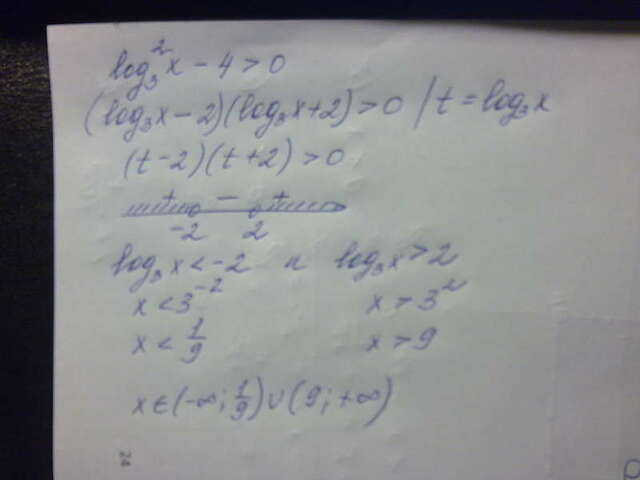 log₃²x - 4 > 0
(log₃x - 2)(log₃x + 2) > 0 / t = log₃x
(t - 2)(t + 2) > 0
+ - +
-2 2
log₃x < -2 и log₃x > 2
x < 3⁻² x > 3²
x < 1/9 x > 9
x ∈ (-∞; 1/9) ∪ (9; +∞)
24